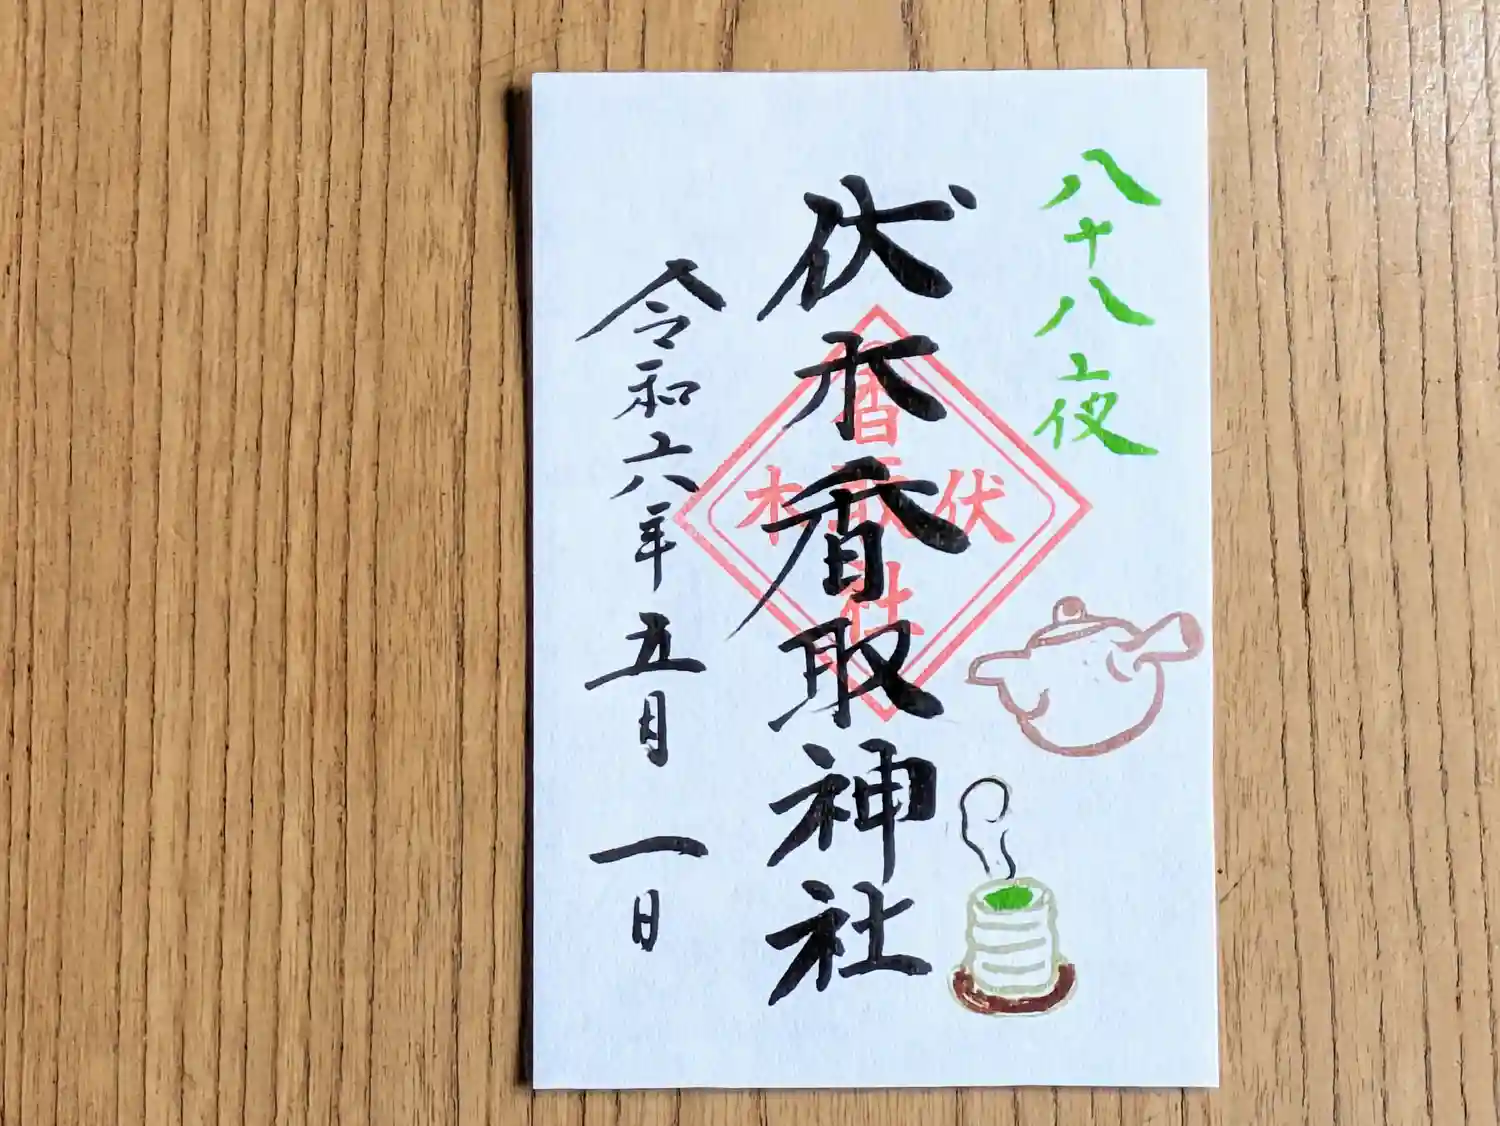 八十八夜
伏木香取神社
令和六年五月一日
伏木
香取社